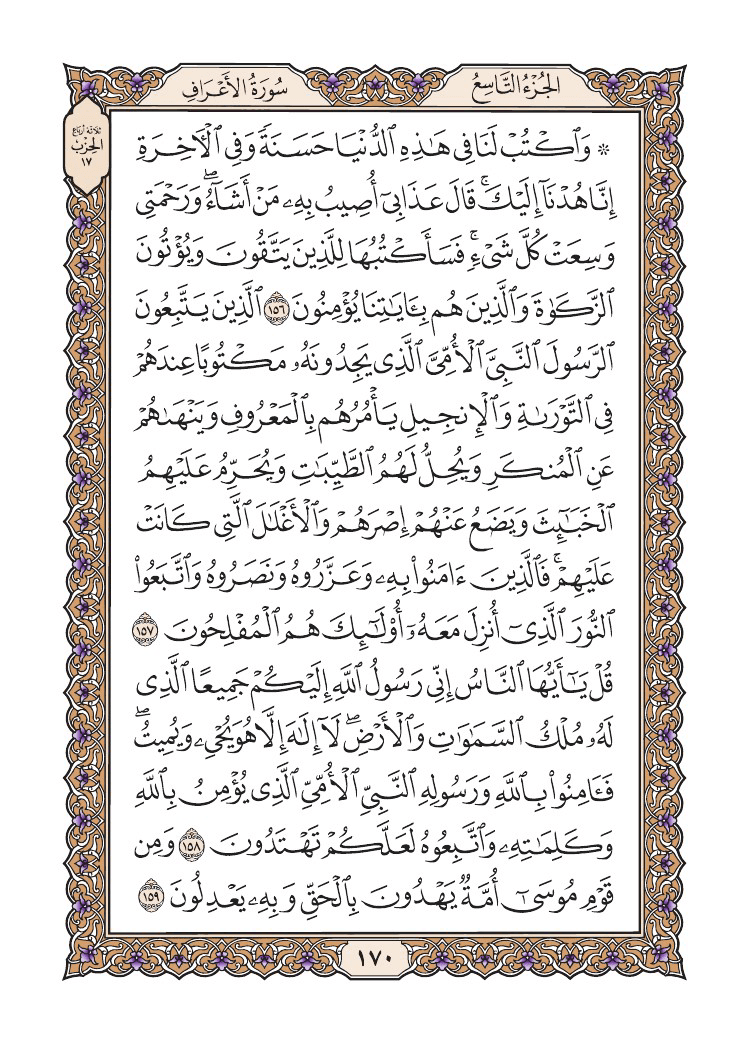 الجُزْءُ التَّاسِعُ
سُورَةُ الأَعْرَافِ
ثلاثة أرباع
الحِزْب
١٧
* وَٱكْتُبْ لَنَا فِي هَٰذِهِ ٱلدُّنْيَا حَسَنَةً وَفِي ٱلْأٓخِرَةِ
إِنَّا هُدْنَآ إِلَيْكَۚ قَالَ عَذَابِيٓ أُصِيبُ بِهِۦ مَنْ أَشَآءُۖ وَرَحْمَتِي
وَسِعَتْ كُلَّ شَيْءٖۚ فَسَأَكْتُبُهَا لِلَّذِينَ يَتَّقُونَ وَيُؤْتُونَ
ٱلزَّكَوٰةَ وَٱلَّذِينَ هُم بِـَٔايَٰتِنَا يُؤْمِنُونَ ١٥٦ ٱلَّذِينَ يَتَّبِعُونَ
ٱلرَّسُولَ ٱلنَّبِيَّ ٱلْأُمِّيَّ ٱلَّذِي يَجِدُونَهُۥ مَكْتُوبًا عِندَهُمْ
فِي ٱلتَّوْرَىٰةِ وَٱلْإِنجِيلِ يَأْمُرُهُم بِٱلْمَعْرُوفِ وَيَنْهَىٰهُمْ
عَنِ ٱلْمُنكَرِ وَيُحِلُّ لَهُمُ ٱلطَّيِّبَٰتِ وَيُحَرِّمُ عَلَيْهِمُ
ٱلْخَبَٰٓئِثَ وَيَضَعُ عَنْهُمْ إِصْرَهُمْ وَٱلْأَغْلَٰلَ ٱلَّتِي كَانَتْ
عَلَيْهِمْۚ فَٱلَّذِينَ ءَامَنُوا۟ بِهِۦ وَعَزَّرُوهُ وَنَصَرُوهُ وَٱتَّبَعُوا۟
ٱلنُّورَ ٱلَّذِيٓ أُنزِلَ مَعَهُۥٓ أُو۟لَٰٓئِكَ هُمُ ٱلْمُفْلِحُونَ ١٥٧
قُلْ يَٰٓأَيُّهَا ٱلنَّاسُ إِنِّي رَسُولُ ٱللَّهِ إِلَيْكُمْ جَمِيعًا ٱلَّذِي
لَهُۥ مُلْكُ ٱلسَّمَٰوَٰتِ وَٱلْأَرْضِۖ لَآ إِلَٰهَ إِلَّا هُوَ يُحْيِۦ وَيُمِيتُۖ
فَـَٔامِنُوا۟ بِٱللَّهِ وَرَسُولِهِ ٱلنَّبِيِّ ٱلْأُمِّيِّ ٱلَّذِي يُؤْمِنُ بِٱللَّهِ
وَكَلِمَٰتِهِۦ وَٱتَّبِعُوهُ لَعَلَّكُمْ تَهْتَدُونَ ١٥٨ وَمِن
قَوْمِ مُوسَىٰٓ أُمَّةٌ يَهْدُونَ بِٱلْحَقِّ وَبِهِۦ يَعْدِلُونَ ١٥٩
١٧٠